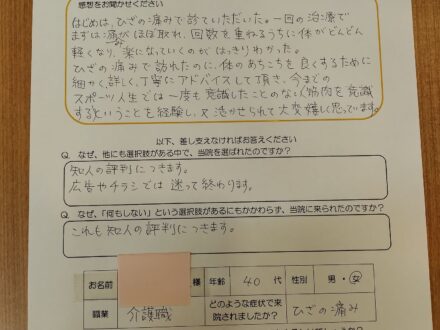 感想をお聞かせください
はじめは、ひざの痛みで診ていただいた。一回の治療で
まずは痛みがほぼ取れ、回数を重ねるうちに体がどんどん
軽くなり、楽になっていくのがはっきりわかった。
ひざの痛みで訪れたのに、体のあちこちを良くするために
細かく、詳しく、丁寧にアドバイスして頂き、今までの
スポーツ人生では一度も意識したことのない筋肉を意識
するということを経験し、又活かせられて大変嬉しく思っています。
以下、差し支えなければお答えください
Q. なぜ、他にも選択肢がある中で、当院を選ばれたのですか?
知人の評判につきます。
広告やチラシでは迷って終わります。
Q. なぜ、「何もしない」という選択肢があるにもかかわらず、当院に来られたのですか?
これも知人の評判につきます。
お名前 様 年齢 40 代 性別 男・女
職業 介護職 どのような症状で来院されましたか? ひざの痛み